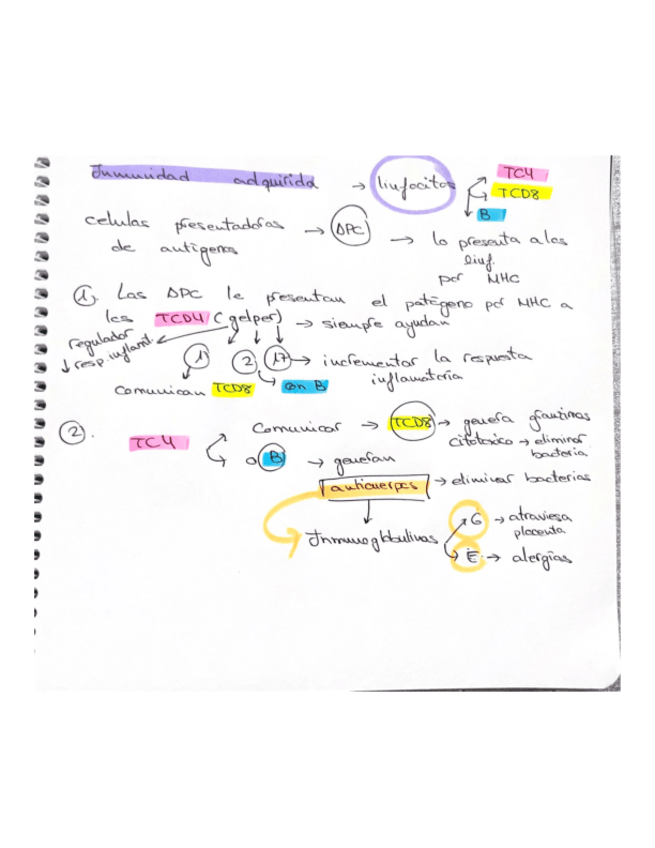 Inmunidad adquirida → linfocitos TC4
TCD8
B
celulas presentadoras → APC → lo presenta a los
de antigenos linf.
por MHC
1. Las APC le presentan el patógeno por MHC a
los TCD4 (gelper) → siempre ayudan
regulador
↓ resp. inflamat.
1 2 17 → incrementar la respuesta
inflamatoria
comunican TCD8 con B
2. TC4 comunicar → TCD8 → genera granzimas
citotóxico → eliminar
bacteria
o B → generan
anticuerpos → eliminar bacterias
Inmunoglobulinas G → atraviesa
placenta
E → alergias